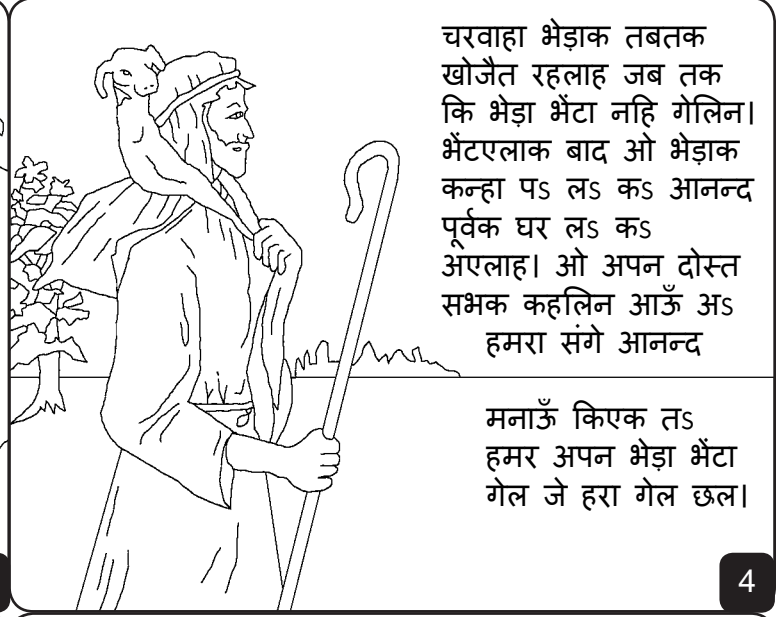 चरवाहा भेड़ाक तबतक
खोजैत रहलाह जब तक
कि भेड़ा भेंटा नहि गेलिन।
भेंटएलाक बाद ओ भेड़ाक
कन्हा पऽ लऽ कऽ आनन्द
पूर्वक घर लऽ कऽ
अएलाह। ओ अपन दोस्त
सभक कहलिन आऊँ अऽ
हमरा संगे आनन्द
मनाऊँ किएक तऽ
हमर अपन भेड़ा भेंटा
गेल जे हरा गेल छल।
4